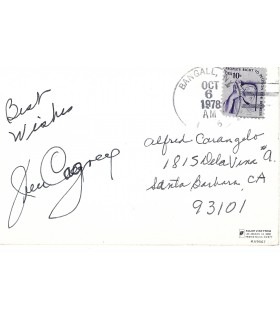 Best
Wishes
Jim Cagney
BANGALL, N.Y.
OCT
6
1978
AM
10c
Alfred Carangelo
1815 De La Vina #A.
Santa Barbara, CA
93101